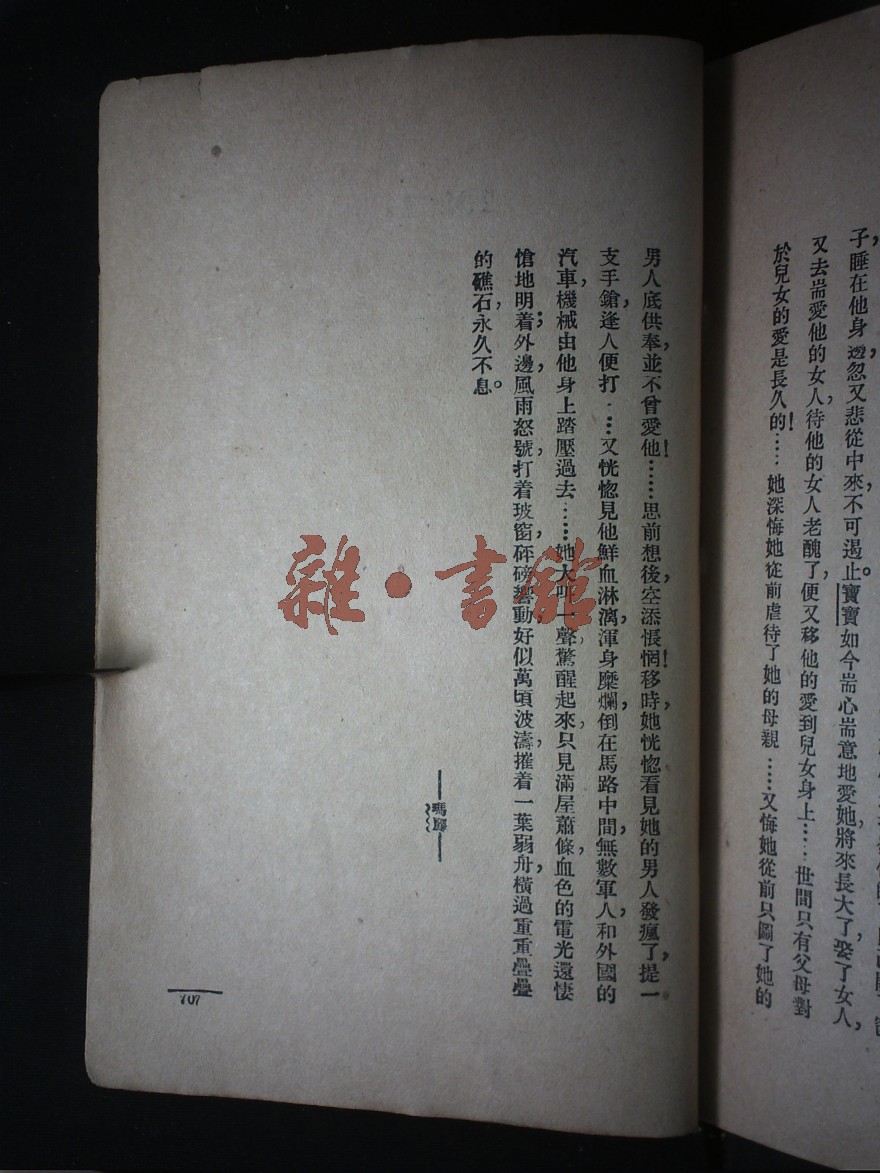 子，睡在他身邊，忽又悲從中來，不可遏止。寶寶如今耑心耑意地愛她，將來長大了，娶了女人，
又去耑愛他的女人，待他的女人老醜了，便又移他的愛到兒女身上……世間只有父母對
於兒女的愛是長久的！……她深悔她從前虐待了她的母親……又悔她從前只圖了她的
男人底供奉，並不曾愛他！……思前想後，空添悵惘！移時，她恍惚看見她的男人發瘋了，提一
支手鎗，逢人便打……又恍惚見他鮮血淋漓，渾身糜爛，倒在馬路中間，無數軍人和外國的
汽車，機械由他身上踏壓過去……她大叫一聲，驚醒起來，只見滿屋蕭條，血色的電光還悽
愴地明着；外邊，風雨怒號，打着玻窗，砰磅震動，好似萬頃波濤，摧着一葉弱舟，橫過重重疊疊
的礁石，永久不息。
瑪麗
707
雜·書館